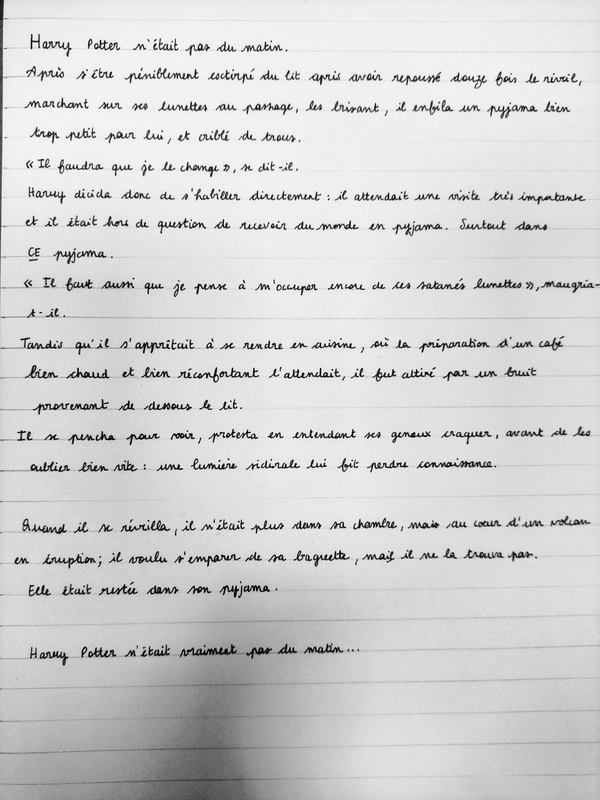 Harry Potter n'était pas du matin.
Après s'être péniblement extirpé du lit après avoir repoussé douze fois le réveil,
marchant sur ses lunettes au passage, les brisant, il enfila un pyjama bien
trop petit pour lui, et criblé de trous.
« Il faudra que je le change », se dit-il.
Harry décida donc de s'habiller directement : il attendait une visite très importante
et il était hors de question de recevoir du monde en pyjama. Surtout dans
CE pyjama.
« Il faut aussi que je pense à m'occuper encore de ces satanés lunettes », maugréa-
t-il.
Tandis qu'il s'apprêtait à se rendre en cuisine, où la préparation d'un café
bien chaud et bien réconfortant l'attendait, il fut attiré par un bruit
provenant de dessous le lit.
Il se pencha pour voir, protesta en entendant ses genoux craquer, avant de les
oublier bien vite : une lumière sidérale lui fit perdre connaissance.
Quand il se réveilla, il n'était plus dans sa chambre, mais au cœur d'un volcan
en éruption; il voulu s'emparer de sa baguette, mais il ne la trouva pas.
Elle était restée dans son pyjama.
Harry Potter n'était vraiment pas du matin...